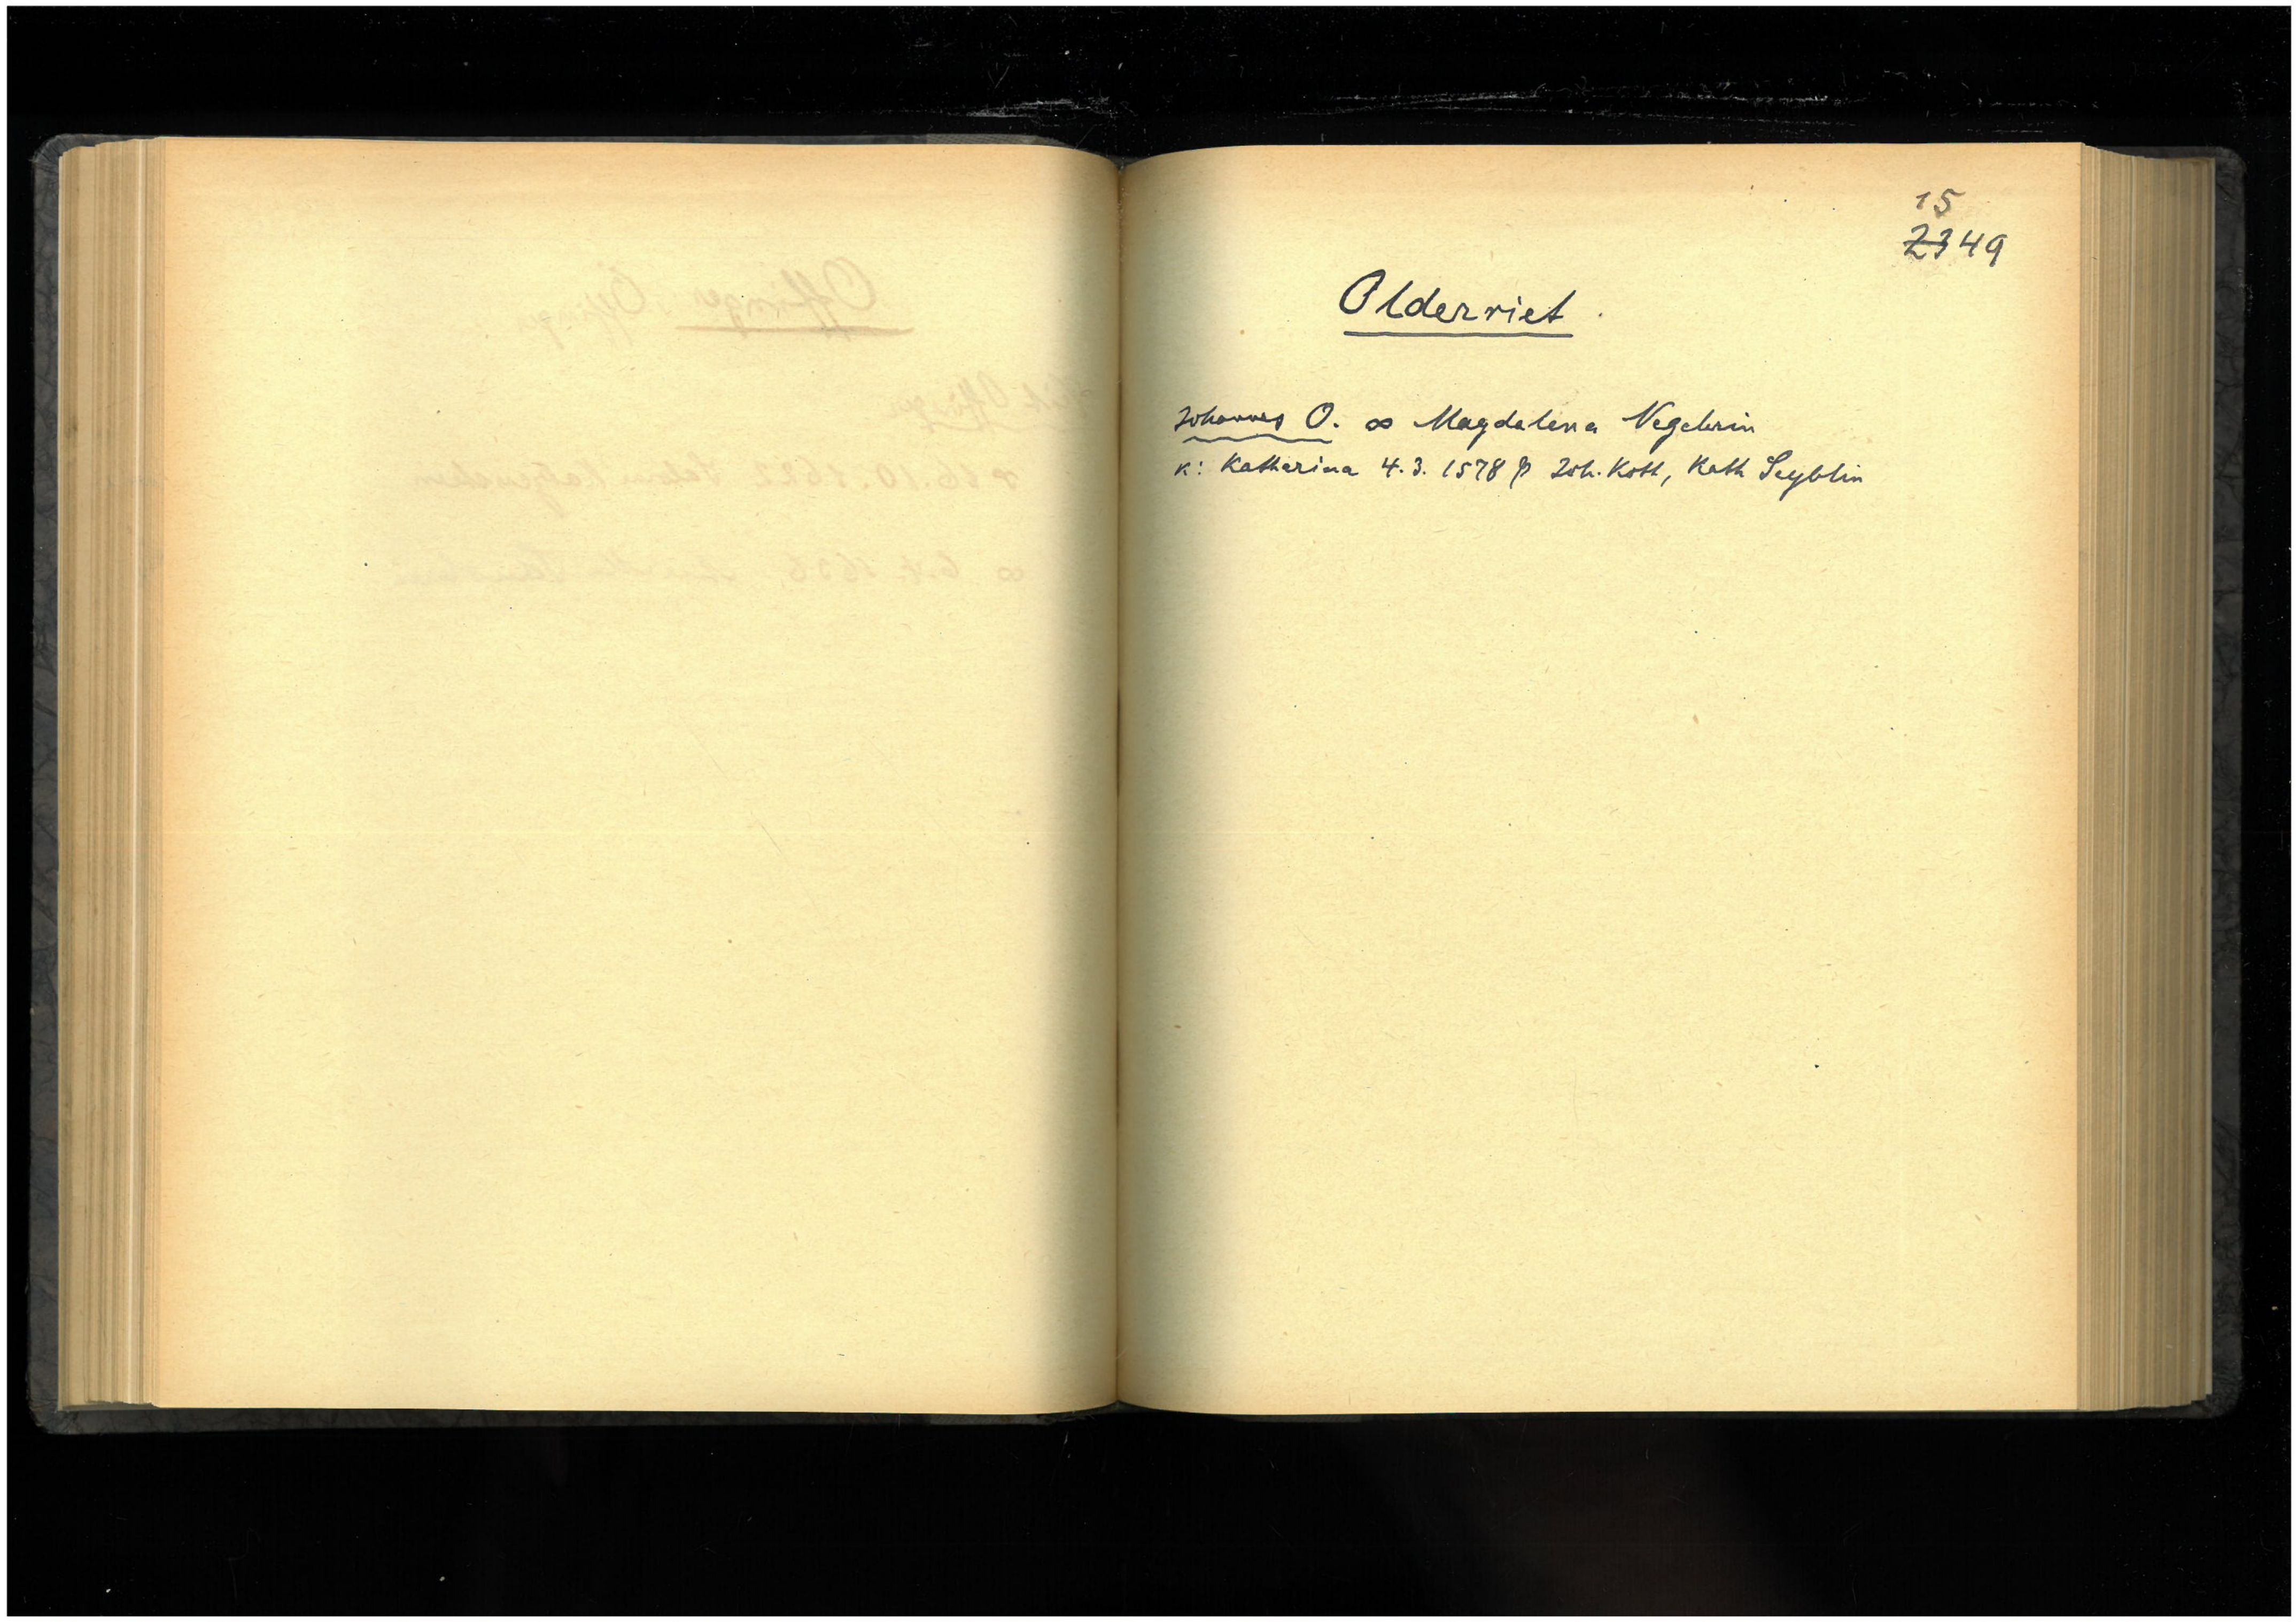 15
2349
Olderriet
Johannes O. ∞ Magdalena
K: Katharina 4.3. 1578 Joh. Koth, Kath Seyblin